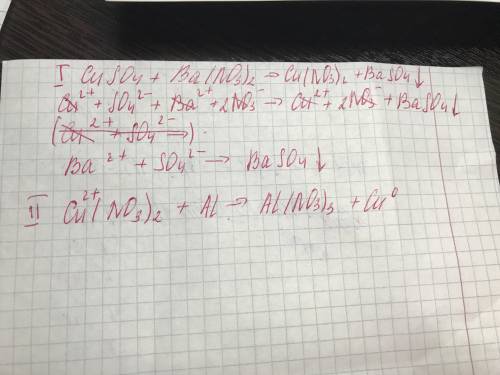 I CuSO4 + Ba(NO3)2 → Cu(NO3)2 + BaSO4↓
Cu²⁺ + SO4²⁻ + Ba²⁺ + 2NO3⁻ → Cu²⁺ + 2NO3⁻ + BaSO4↓
(Cu²⁺ + SO4²⁻ →)
Ba²⁺ + SO4²⁻ → BaSO4↓
II Cu²⁺(NO3)2 + Al → Al(NO3)3 + Cu⁰